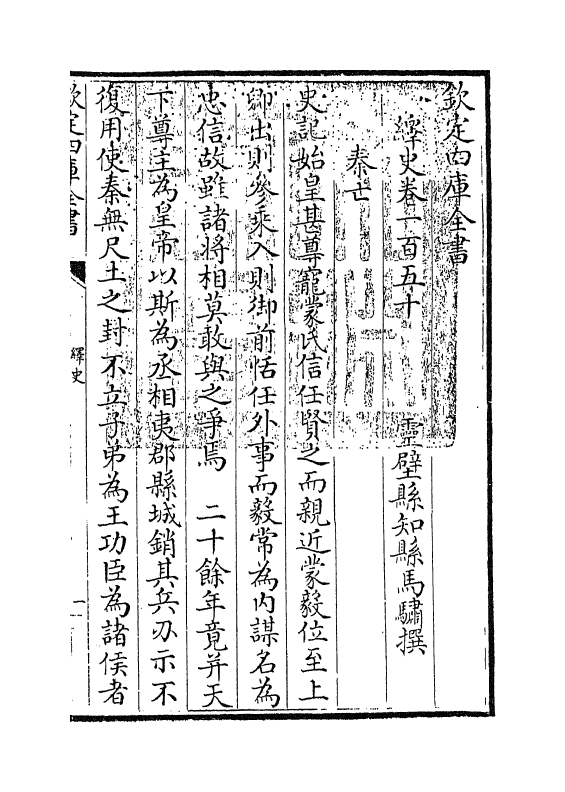 欽定四庫全書
繹史卷一百五十
靈壁縣知縣馬驌撰
秦亡
史記始皇甚尊寵蒙氏信任賢之而親近蒙毅位至上
卿出則參乘入則御前恬任外事而毅常為内謀名為
忠信故雖諸將相莫敢與之爭焉　二十餘年竟并天
下尊主為皇帝以斯為丞相夷郡縣城銷其兵刃示不
復用使秦無尺土之封不立子弟為王功臣為諸侯者
欽定四庫全書
繹史
一